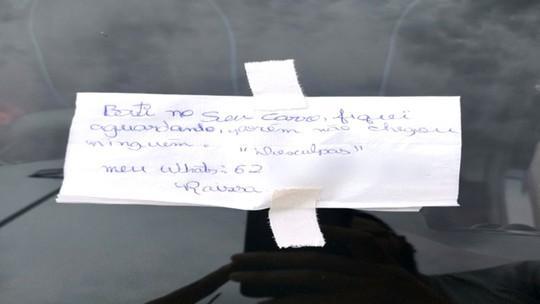 Bati no seu carro, fiquei
aguardando, porém não chegou
ninguem. "Desculpas"
meu Whats: 62